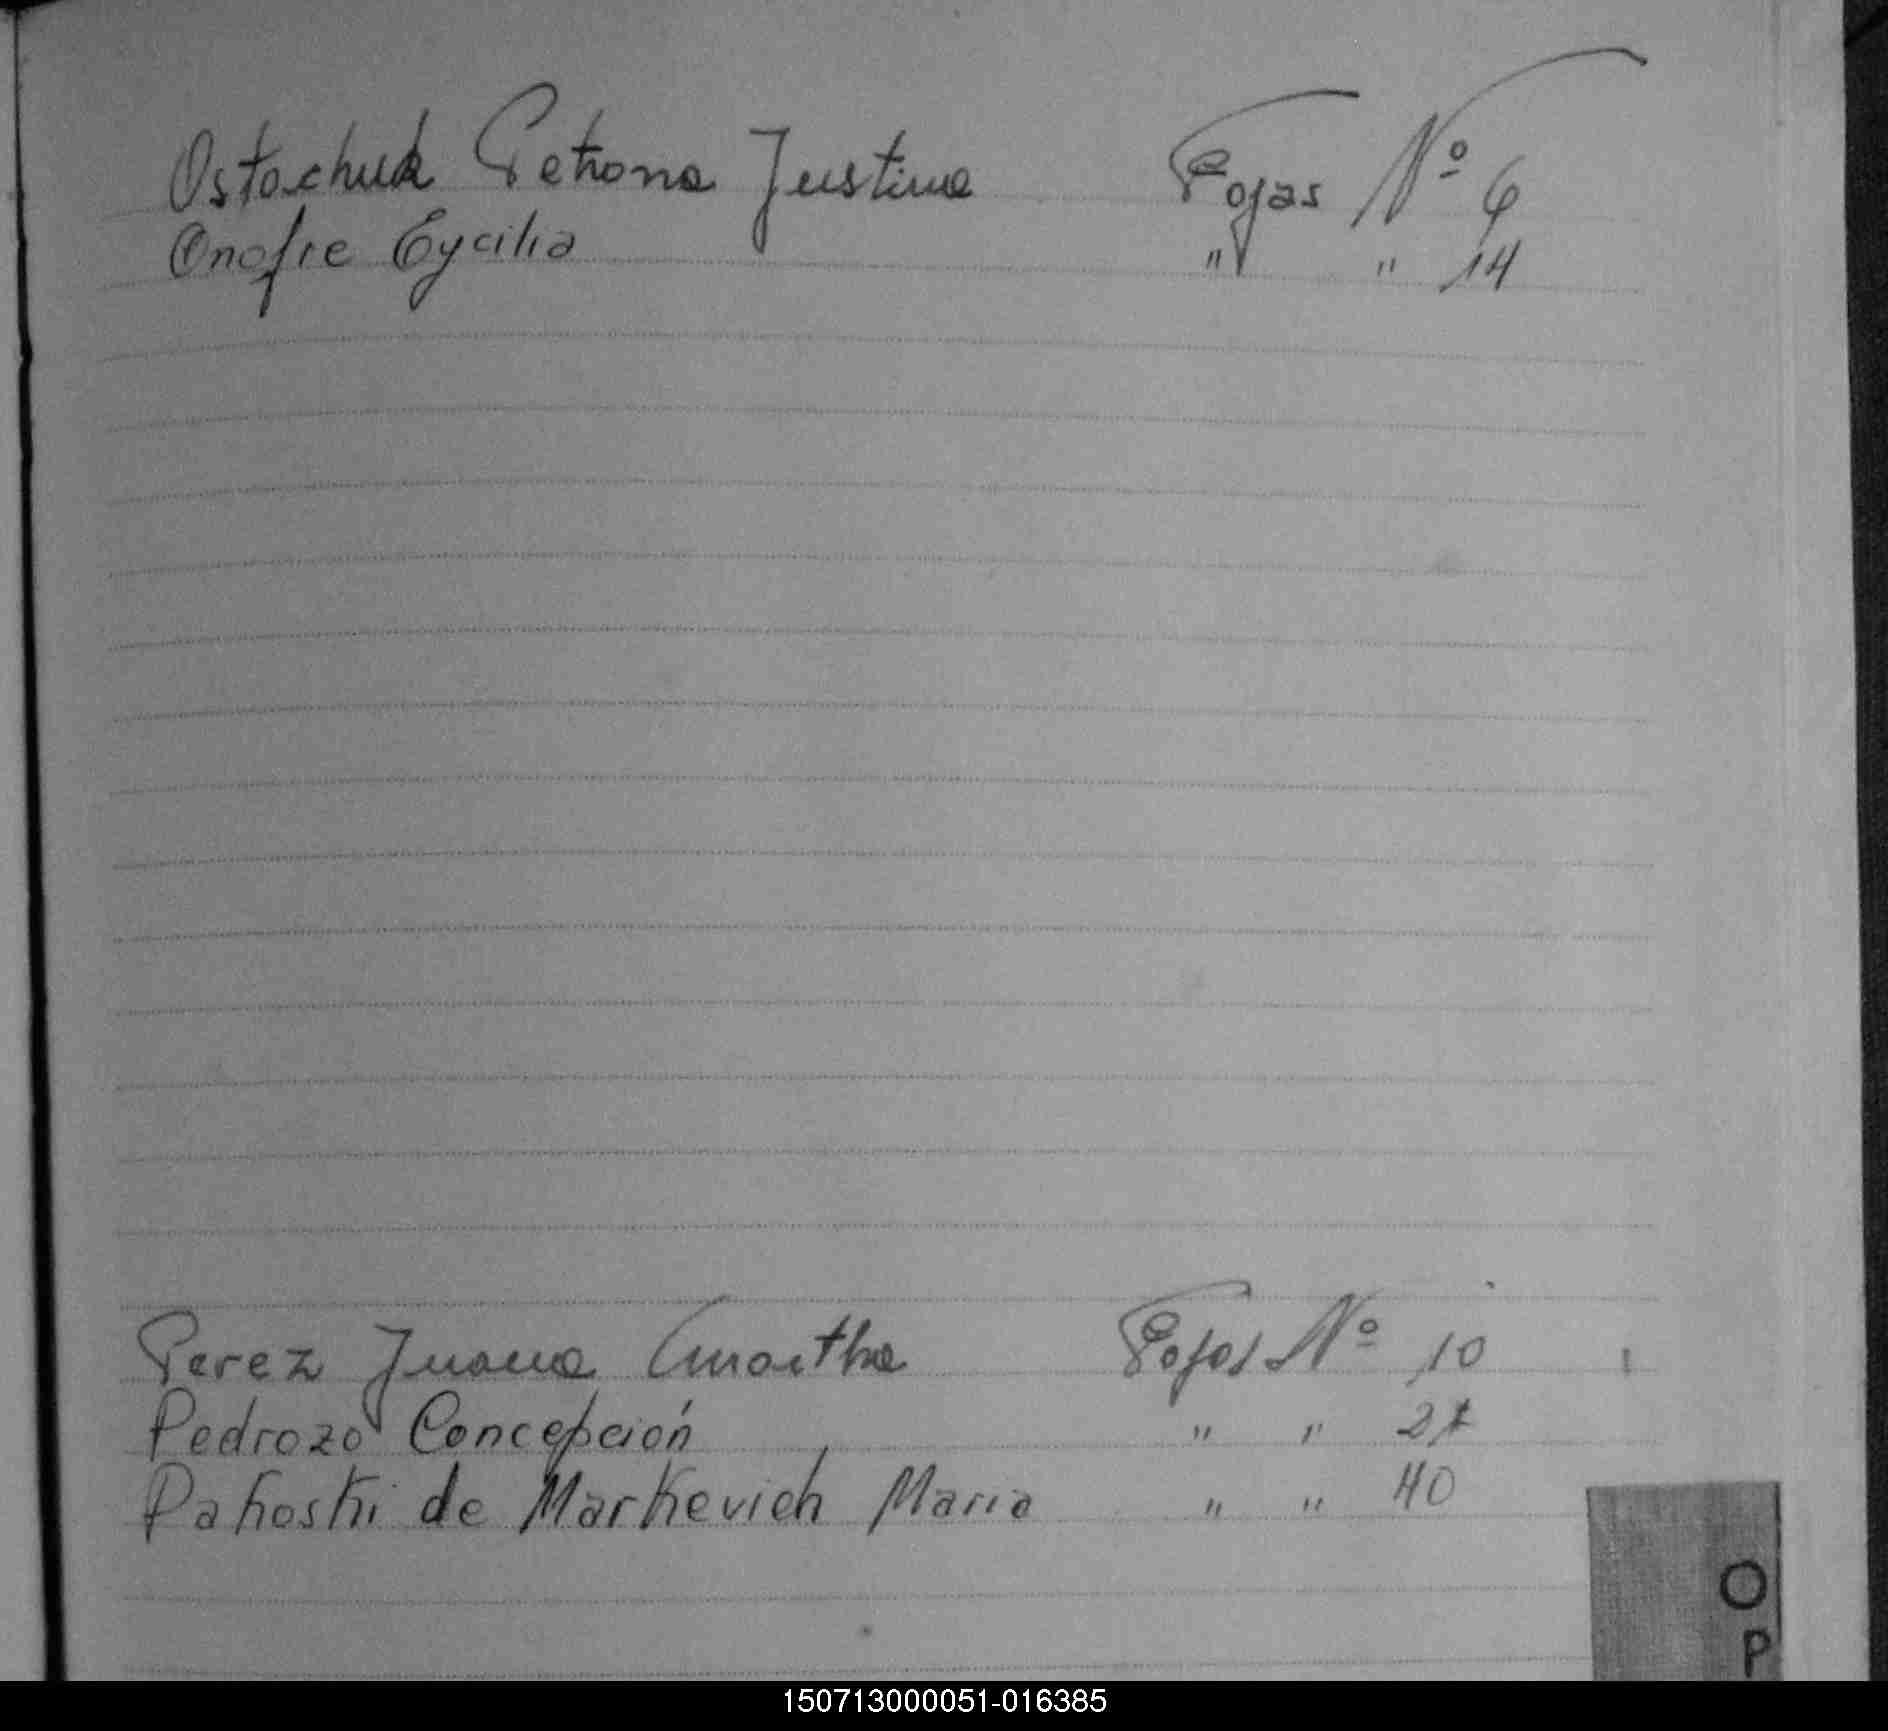 Ostachuk Petrona Justina Fojas Nº 6
Onofre Cycilia " " 14
Perez Juana Martha Fojas Nº 10
Pedrozo Concepción " " 21
Pakoski de Markevich Maria " " 40
O
P
150713000051-016385